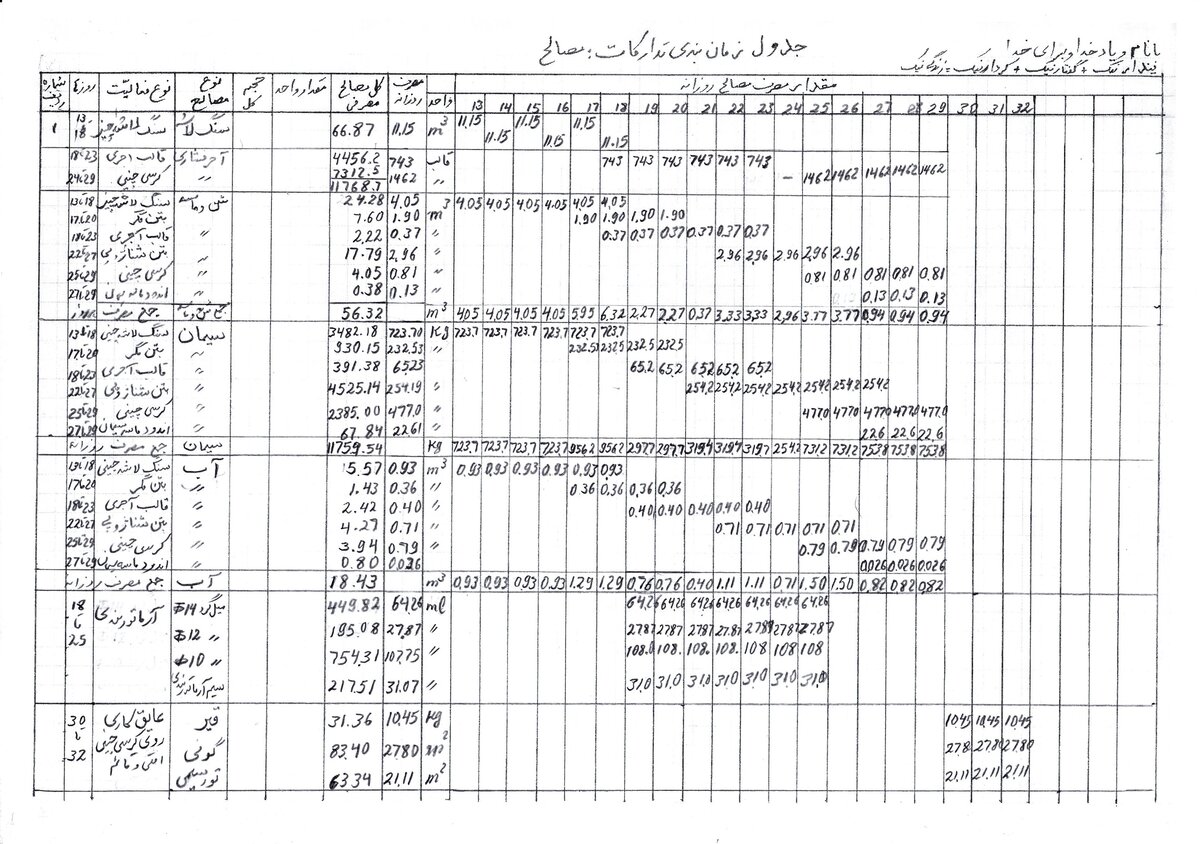 بانام و یاد خدا و برای خدا
جدول زمان بندی تدارکات: مصالح
پندار نیک + گفتار نیک + کردار نیک = زندگی نیک
شماره ردیف روزها نوع فعالیت نوع مصالح حجم کل مقدار واحد کل مصالح مصرفی مصرف روزانه واحد مقدار مصرف مصالح روزانه
13 14 15 16 17 18 19 20 21 22 23 24 25 26 27 28 29 30 31 32
1 13تا18 سنگ لاشه چینی سنگ لاشه 66.87 11.15 m³ 11.15 11.15 11.15 11.15 11.15 11.15
18تا23 قالب آجری آجر فشاری 4456.2 743 قالب 743 743 743 743 743 743
24تا29 کرسی چینی 〃 7312.5 1462 〃 - 1462 1462 1462 1462 1462
11768.7
13تا18 سنگ لاشه چینی شن و ماسه 24.28 4.05 m³ 4.05 4.05 4.05 4.05 4.05 4.05
17تا20 بتن مگر 〃 7.60 1.90 1.90 1.90 1.90 1.90
18تا23 قالب آجری 〃 2.22 0.37 〃 0.37 0.37 0.37 0.37 0.37 0.37
22تا27 بتن شناژ و پی 〃 17.79 2.96 〃 2.96 2.96 2.96 2.96 2.96
25تا29 کرسی چینی 〃 4.05 0.81 〃 0.81 0.81 0.81 0.81 0.81
27تا29 اندود ماسه سیمان 〃 0.38 0.13 〃 0.13 0.13 0.13
جمع مصرف روزانه شن و ماسه 56.32 m³ 4.05 4.05 4.05 4.05 5.95 6.32 2.27 2.27 0.37 3.33 3.33 2.96 3.77 3.77 0.94 0.94 0.94
13تا18 سنگ لاشه چینی سیمان 3482.18 723.70 Kg 723.7 723.7 723.7 723.7 723.7 723.7
17تا20 بتن مگر 〃 930.15 232.53 〃 232.5 232.5 232.5 232.5
18تا23 قالب آجری 〃 391.38 65.23 65.2 65.2 65.2 65.2 65.2
22تا27 بتن شناژ و پی 〃 4525.14 254.19 〃 254.2 254.2 254.2 254.2 254.2 254.2 254.2
25تا29 کرسی چینی 〃 2385.00 477.0 〃 477.0 477.0 477.0 477.0 477.0
27تا29 اندود ماسه سیمان 〃 67.84 22.61 〃 22.6 22.6 22.6
جمع مصرف روزانه سیمان 11759.54 Kg 723.7 723.7 723.7 723.7 956.2 956.2 297.7 297.7 319.4 319.4 319.7 254.2 731.2 731.2 753.8 753.8 753.8
13تا18 سنگ لاشه چینی آب 5.57 0.93 m³ 0.93 0.93 0.93 0.93 0.93 0.93
17تا20 بتن مگر 〃 1.43 0.36 〃 0.36 0.36 0.36 0.36
18تا23 قالب آجری 〃 2.42 0.40 〃 0.40 0.40 0.40 0.40 0.40
22تا27 بتن شناژ و پی 〃 4.27 0.71 〃 0.71 0.71 0.71 0.71 0.71
25تا29 کرسی چینی 〃 3.94 0.79 〃 0.79 0.79 0.79 0.79 0.79
27تا29 اندود ماسه سیمان 〃 0.80 0.026 0.026 0.026 0.026
جمع مصرف روزانه آب 18.43 m³ 0.93 0.93 0.93 0.93 1.29 1.29 0.76 0.76 0.40 1.11 1.11 0.71 1.50 1.50 0.82 0.82 0.82
18 تا 25 آرماتوربندی میلگرد Φ14 449.82 64.26 ml 64.26 64.26 64.26 64.26 64.26 64.26 64.26
〃 Φ12 195.08 27.87 〃 27.87 27.87 27.87 27.87 27.87 27.87 27.87
〃 Φ10 754.31 107.75 〃 108.0 108. 108. 108. 108 108 108
سیم آرماتوربندی 217.51 31.07 〃 31.0 31.0 31.0 31.0 31.0 31.0 31.0
30 تا 32 عایق کاری روی کرسی چینی افقی و قائم قیر 31.36 10.45 Kg 10.45 10.45 10.45
گونی 83.40 27.80 m² 27.8 27.80 27.80
توری سیمی 63.34 21.11 m² 21.11 21.11 21.11